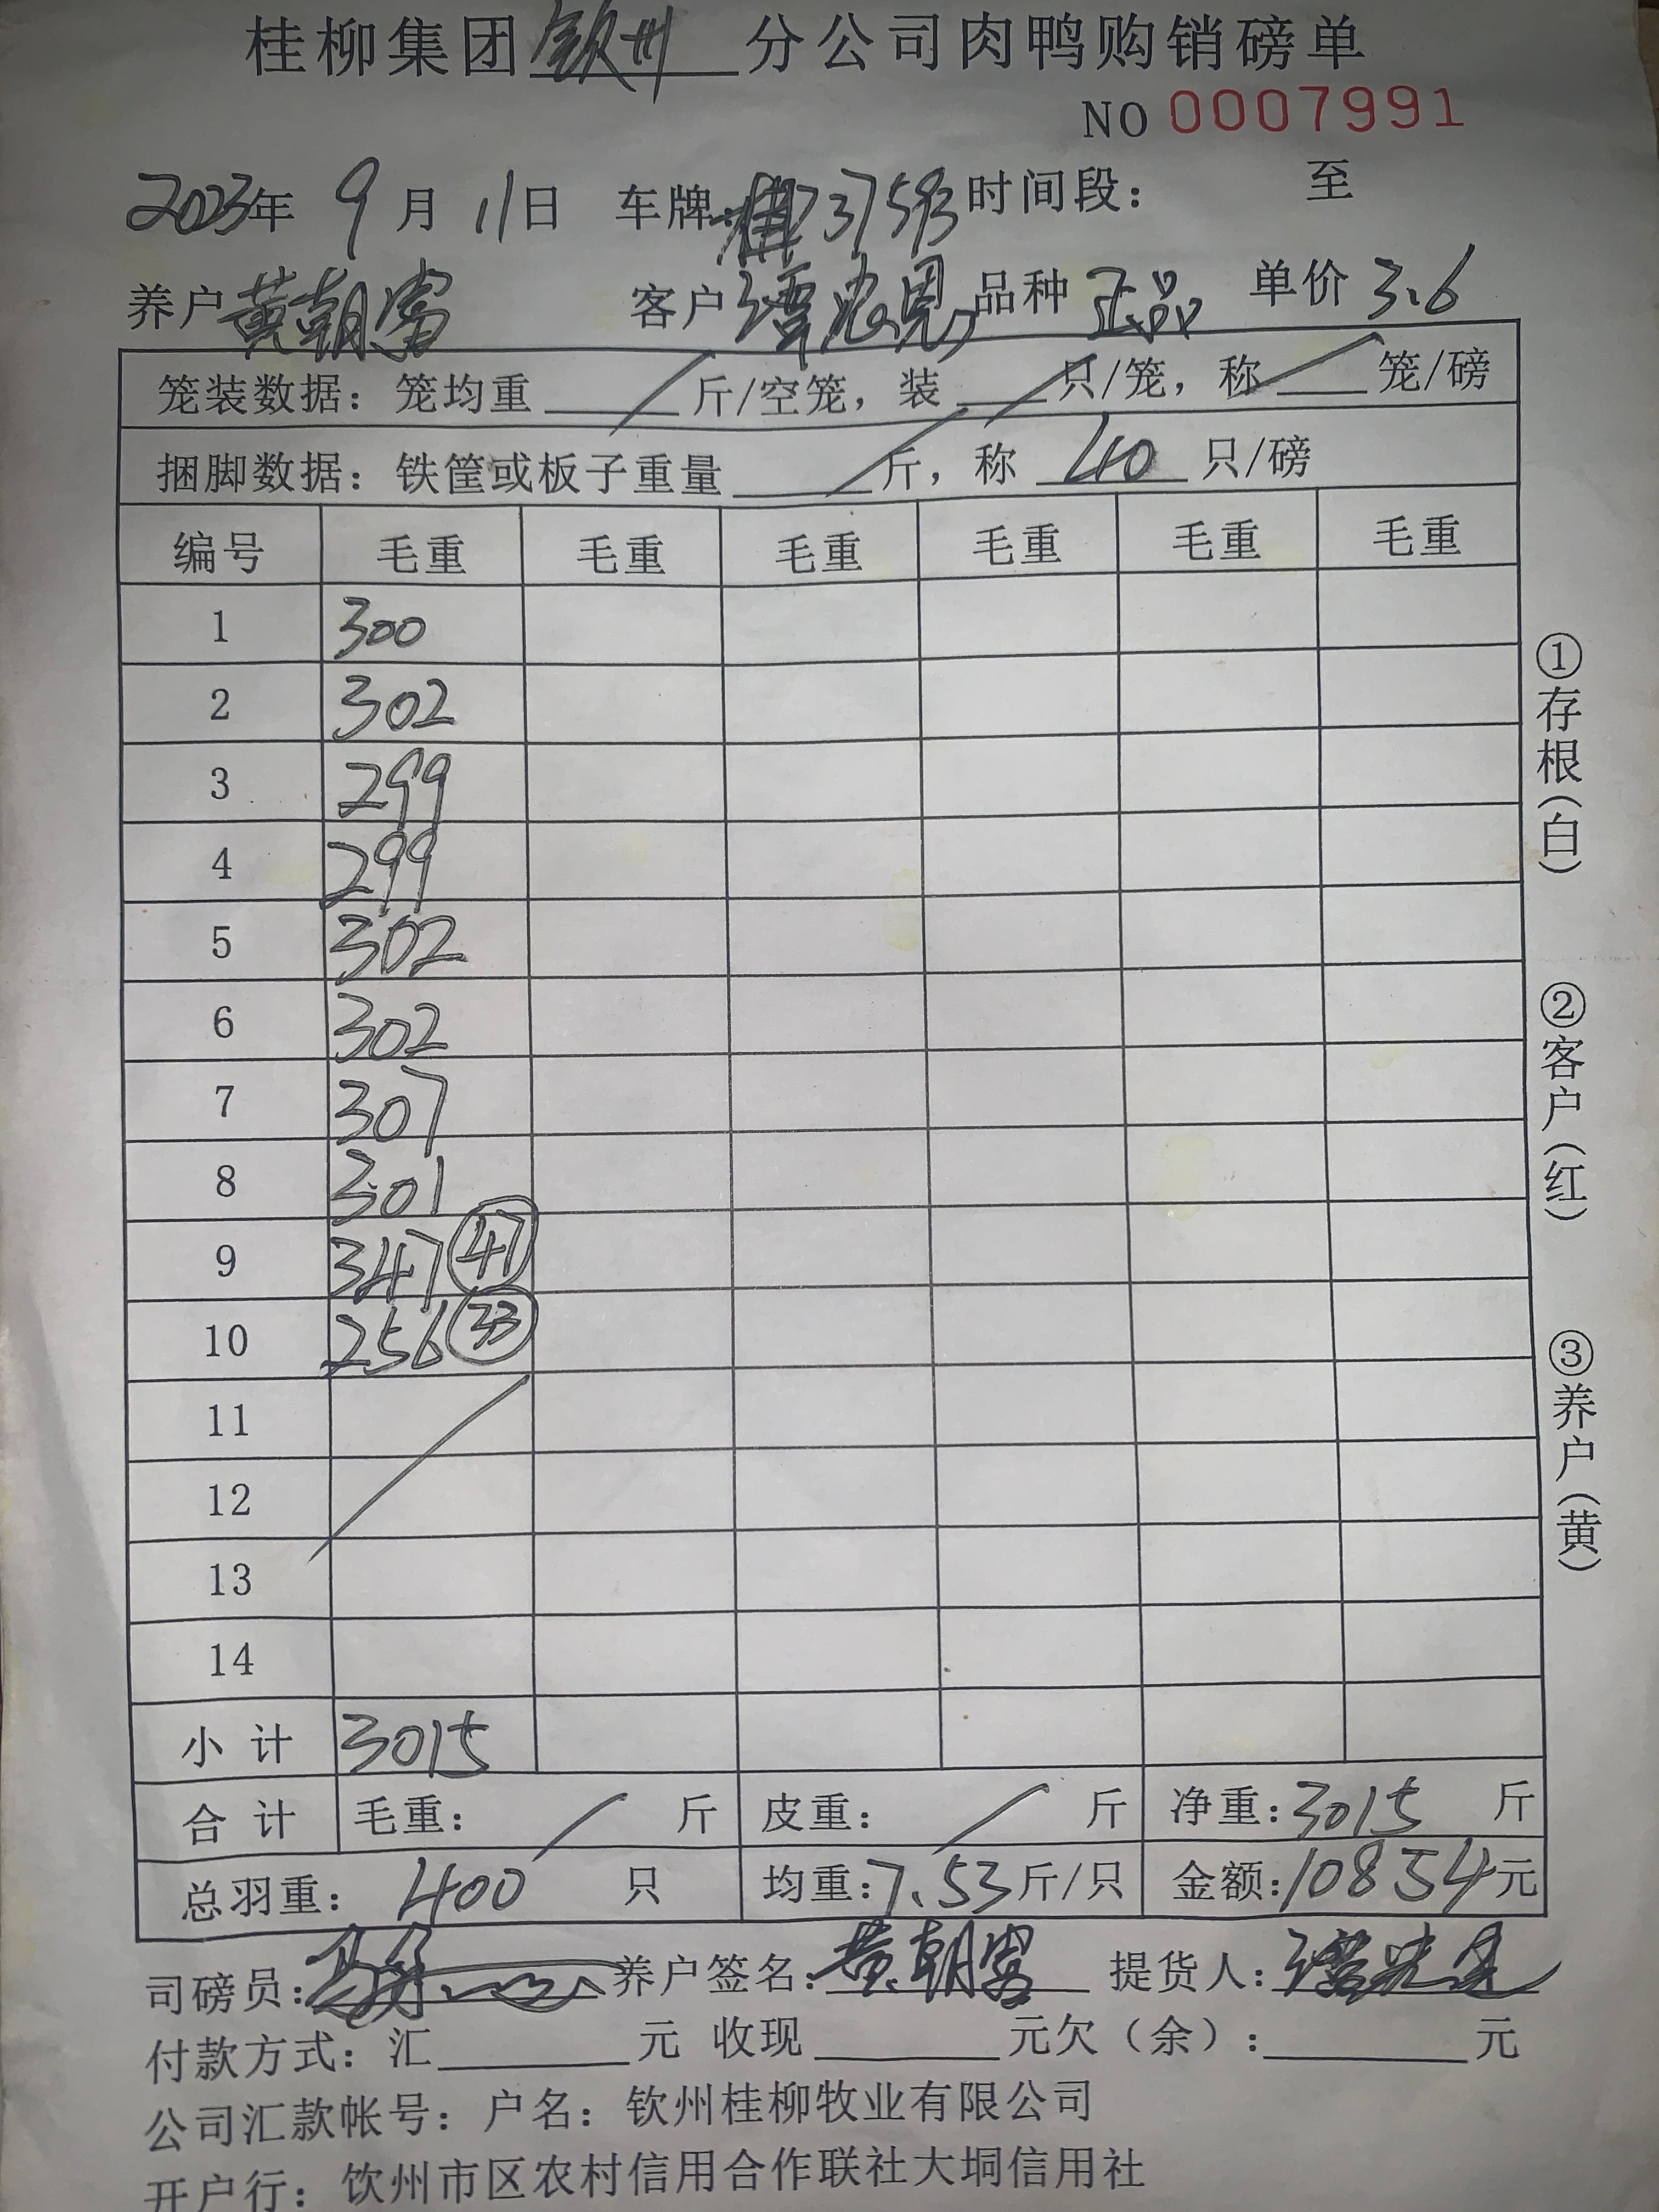 桂柳集团钦州分公司肉鸭购销磅单
NO 0007991
2023年 9月 11日 车牌: 737593 时间段: 至
养户黄朝富 客户谭 恩 品种 正品 单价 3.6
笼装数据:笼均重____斤/空笼,装____只/笼,称____笼/磅
捆脚数据:铁筐或板子重量____斤,称 40 只/磅
编号 毛重 毛重 毛重 毛重 毛重 毛重
1 300
2 302
3 299
4 299
5 302
6 302
7 307
8 301
9 347 ㊼ 
10 256 ㉝
11
12
13
14
小计 3015
合计 毛重: 斤 皮重: 斤 净重:3015 斤
总羽重: 400 只 均重:7.53斤/只 金额:10854元
司磅员: 养户签名:黄朝富 提货人:
付款方式:汇____元 收现____元欠(余):____元
公司汇款帐号:户名:钦州桂柳牧业有限公司
开户行:钦州市区农村信用合作联社大垌信用社
①存根(白)
②客户(红)
③养户(黄)